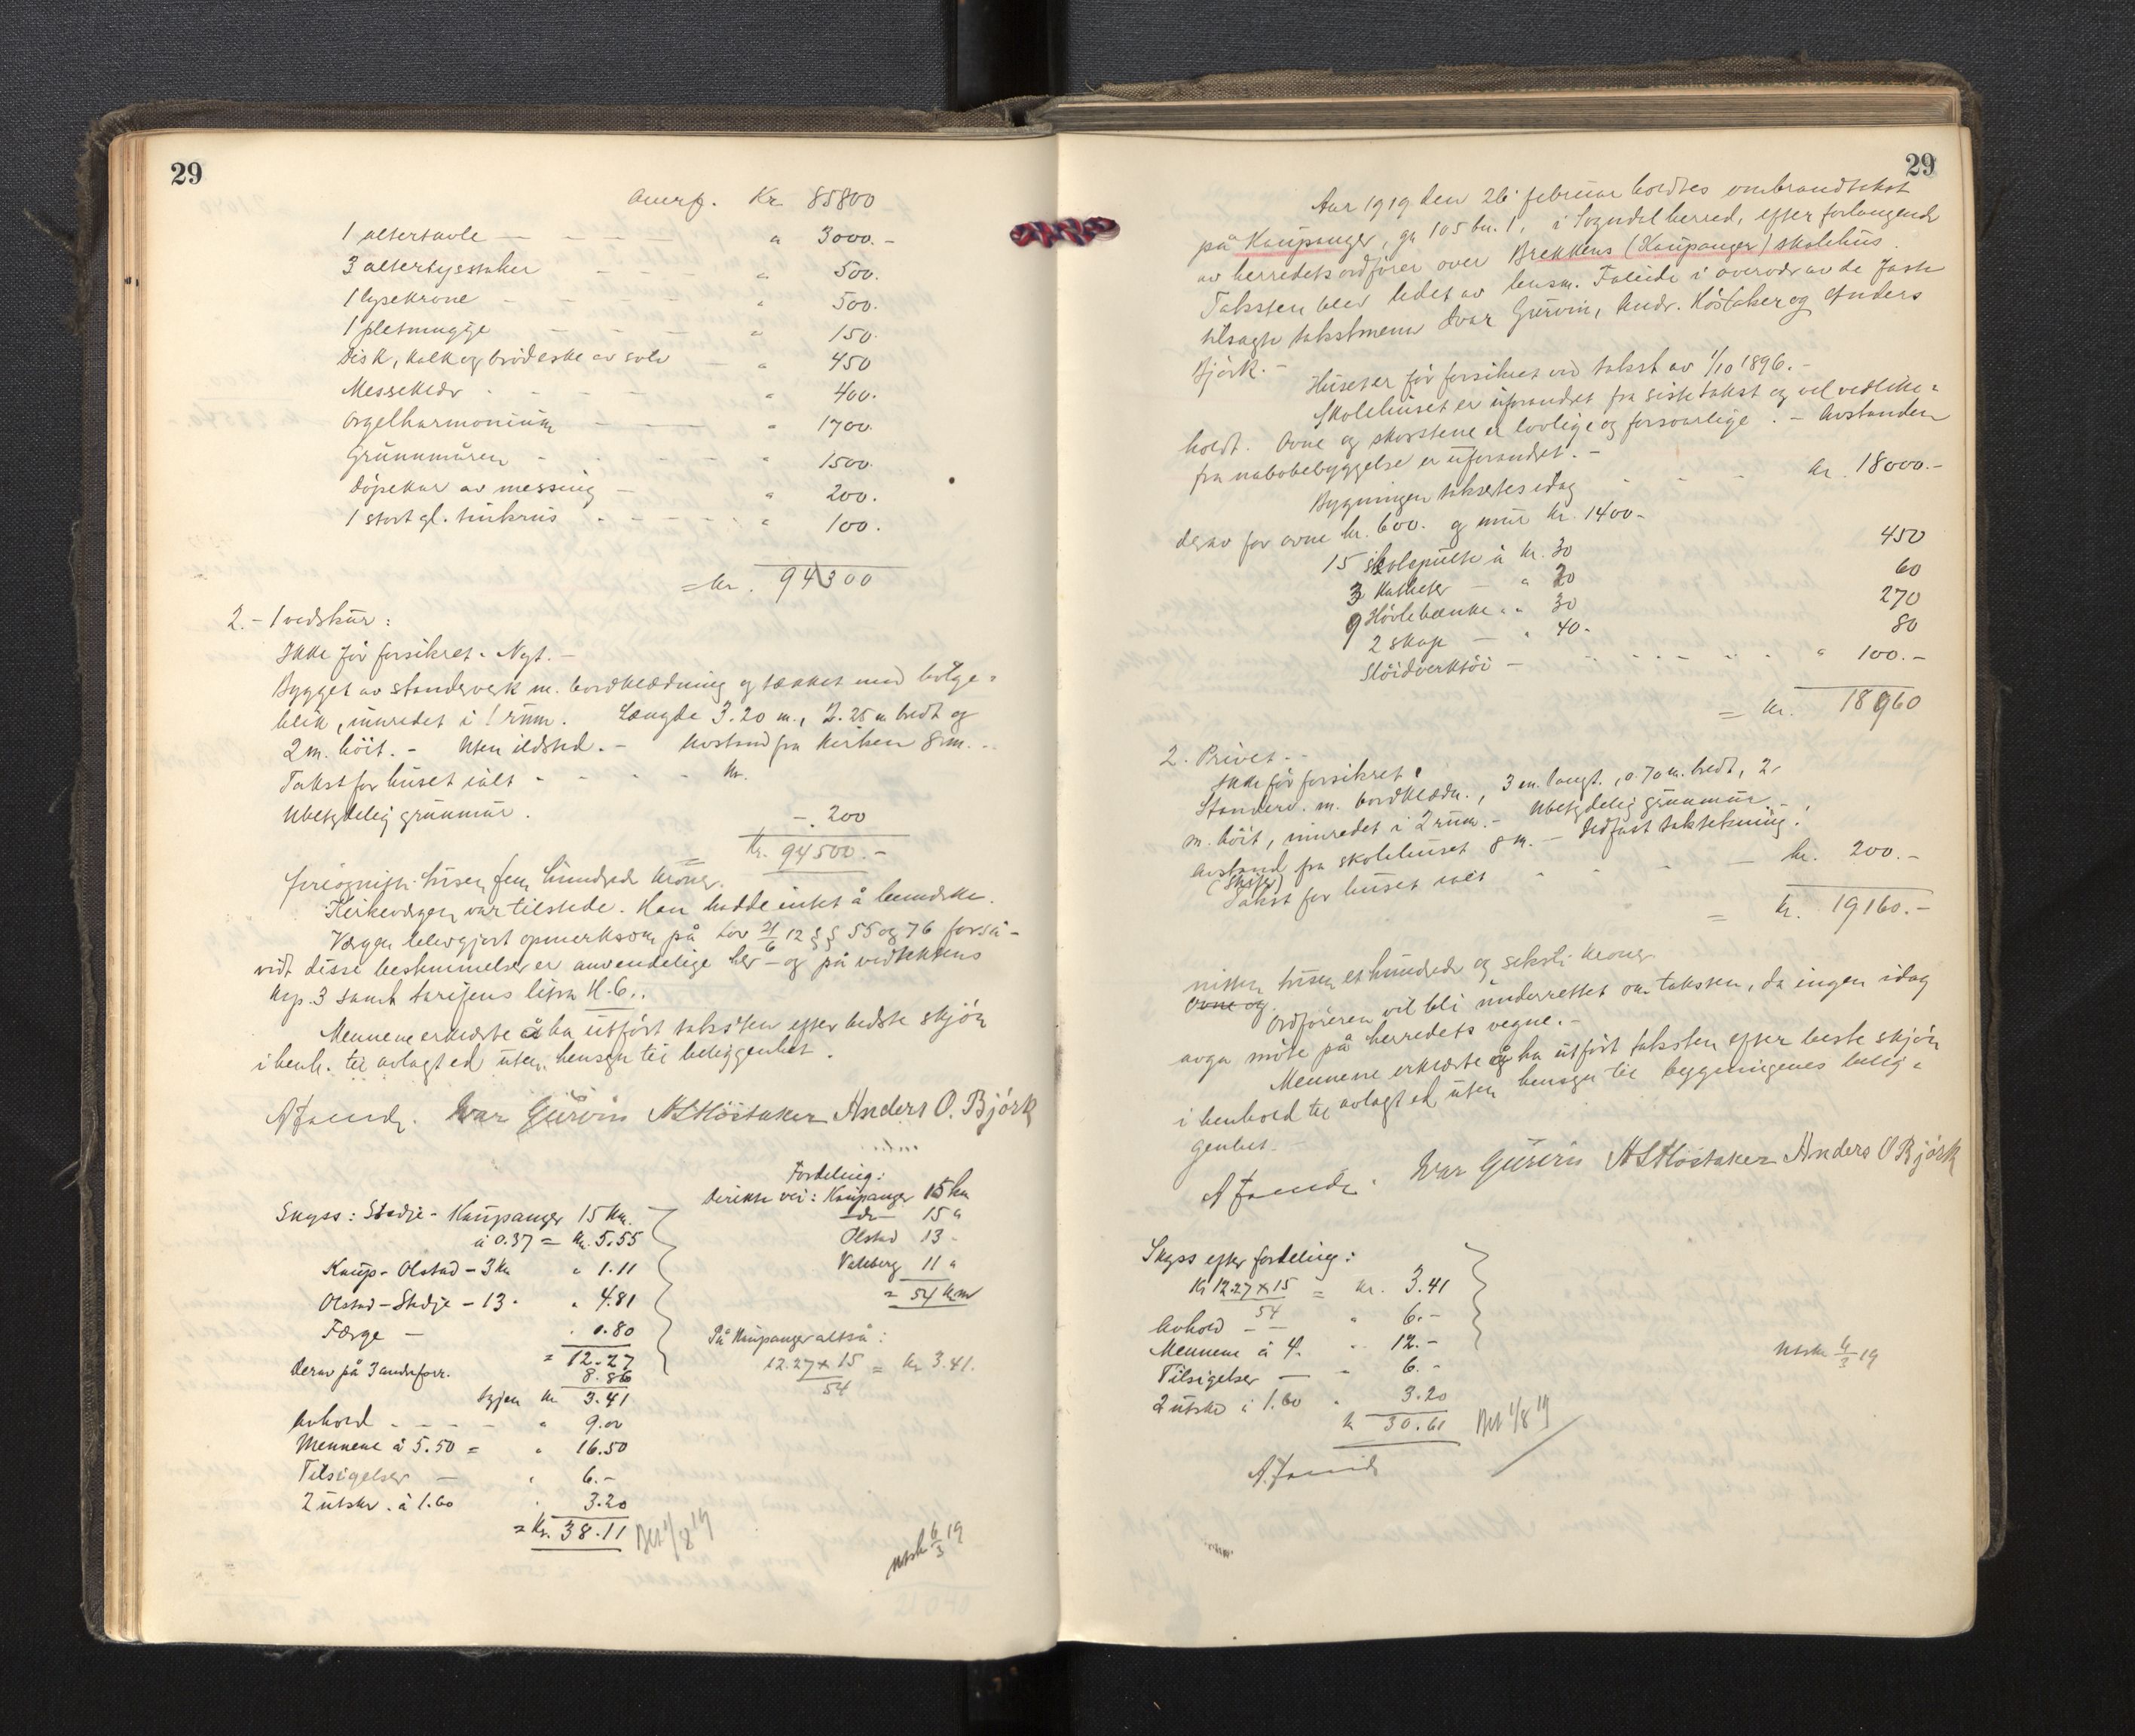 29
Overf. Kr. 85800
1 altertavle — - - - " 3000.-
3 alterlysstaker - - - " 500.
1 lysekrone - - - - " 500.
1 pletmugge - - - - " 150.
Disk, kalk og brødeske av sølv - " 450
Messeklær - - - " 400.
Orgelharmonium - - - " 1700.
Grunnmuren - - - - " 1500.
Døpekar av messing - " 200.
1 stort gl. tinkrus - - - " 100.
= kr. 94300
2. - 1 vedskur:
Ikke før forsikret. Nyt. -
Bygget av standerverk m. bordklædning og tækket med bølge=
blik, innredet i 1 rum. Længde 3.20 m., 2.25 m bredt og
2 m. høit. - Uten ildsted. - Avstand fra kirken 8 m. -
Takst for huset ialt - - - - kr.
Ubetydelig grunmur. -. 200
Kr. 94500.-
firiognitti tusen fem hundrede kroner.
Kirkevergen var tilstede. Han hadde intet å bemerke.
Vergen blev gjort opmerksom på Lov 21/6 12 §§ 55 og 76 forså-
vidt disse bestemmelser er anvendelige her - og på vedtektens
kap. 3 samt tarifens litra H.6..
Mennene erklærte å ha utført taksten efter bedste skjøn
i henh. til avlagt ed uten hensyn til beliggenhet.
A Faleide. Ivar Gurvin A L Høstaker Anders O. Bjørk
Fordeling:
Direkte vei: Kaupanger 15 km
-dr- 15 "
Olstad 13 -
Vatleberg 11 "
= 54 km
På Kaupanger altså:
12.27 x 15 = kr 3.41.
54
Skyss: Stedje - Kaupanger 15 km.
à 0.37 = kr. 5.55
Kaup - Olstad - 3 km " 1.11
Olstad - Stedje - 13 - " 4.81
Færge — . 0.80
= 12.27
Derav på 3 andre forr. 8.86
Igjen kr 3.41
Avhold - - - - " 9.00
Mennene à 5.50 = " 16.50
Tilsigelser — " 6.-
2 utskr. à 1.60 . 3.20
= Kr. 38.11 Bet 1/8 19
utsk 6/3 19
29
Aar 1919 den 26 februar holdtes ombrandtakst
på Kaupanger, gn 105 bn. 1, i Sogndal herred, efter forlangende
av herredets ordfører over Brekkens (Kaupanger) skolehus.
Taksten blev ledet av lensm. Faleide i overvær av de faste
tilsagte takstmenn Ivar Gurvin, Andr. Høstaker og Anders
Bjørk. -
Huset er før forsikret ved takst av 1/10 1896. -
Skolehuset er uforandret fra siste takst og vel vedlike=
holdt. Ovne og skorstene er lovlige og forsvarlige. - Avstanden
fra nabobebyggelse er uforandret. -
Bygningen takseres idag - - - kr. 18000.-
derav for ovne kr. 600. og mur kr. 1400-
15 skolepulte à kr. 30 450
3 Kateter — " 20 60
9 Høvlebænke " " 30 270
2 skap — " 40- 80
Sløidverktøi — - - - - " 100.-
= kr. 18960
2. Privet. -
Ikke før forsikret.
Standerv. m. bordklædn., 3 m. langt., 0.70 m. bredt, 2
m. høit, innredet i 2 rum. - Ubetydelig grunmur. -
Avstand fra skolehuset 8 m. - Ildfast taktekning.
(skifer)
Takst for huset ialt - - - - kr. 200.-
= Kr. 19160.-
nitten tusen et hundrede og seksti kroner
Ovne og
Ordføreren vil bli underrettet om taksten, da ingen idag
avga møte på herredets vegne. -
Mennene erklærte å ha utført taksten efter beste skjøn
i henhold til avlagt ed uten hensyn til bygningenes belig=
genhet. -
A Faleide. Ivar Gurvin A L Høstaker Anders O Bjørk
Skyss efter fordeling:
Kr 12.27 x 15 = kr. 3.41
54
Avhold - — " 6.-
Mennene à 4. " 12.-
Tilsigelser — " 6.-
2 utskr à 1.60 " 3.20
kr 30.61 Bet 1/8 19
A. Faleide
utsk 6/3 19